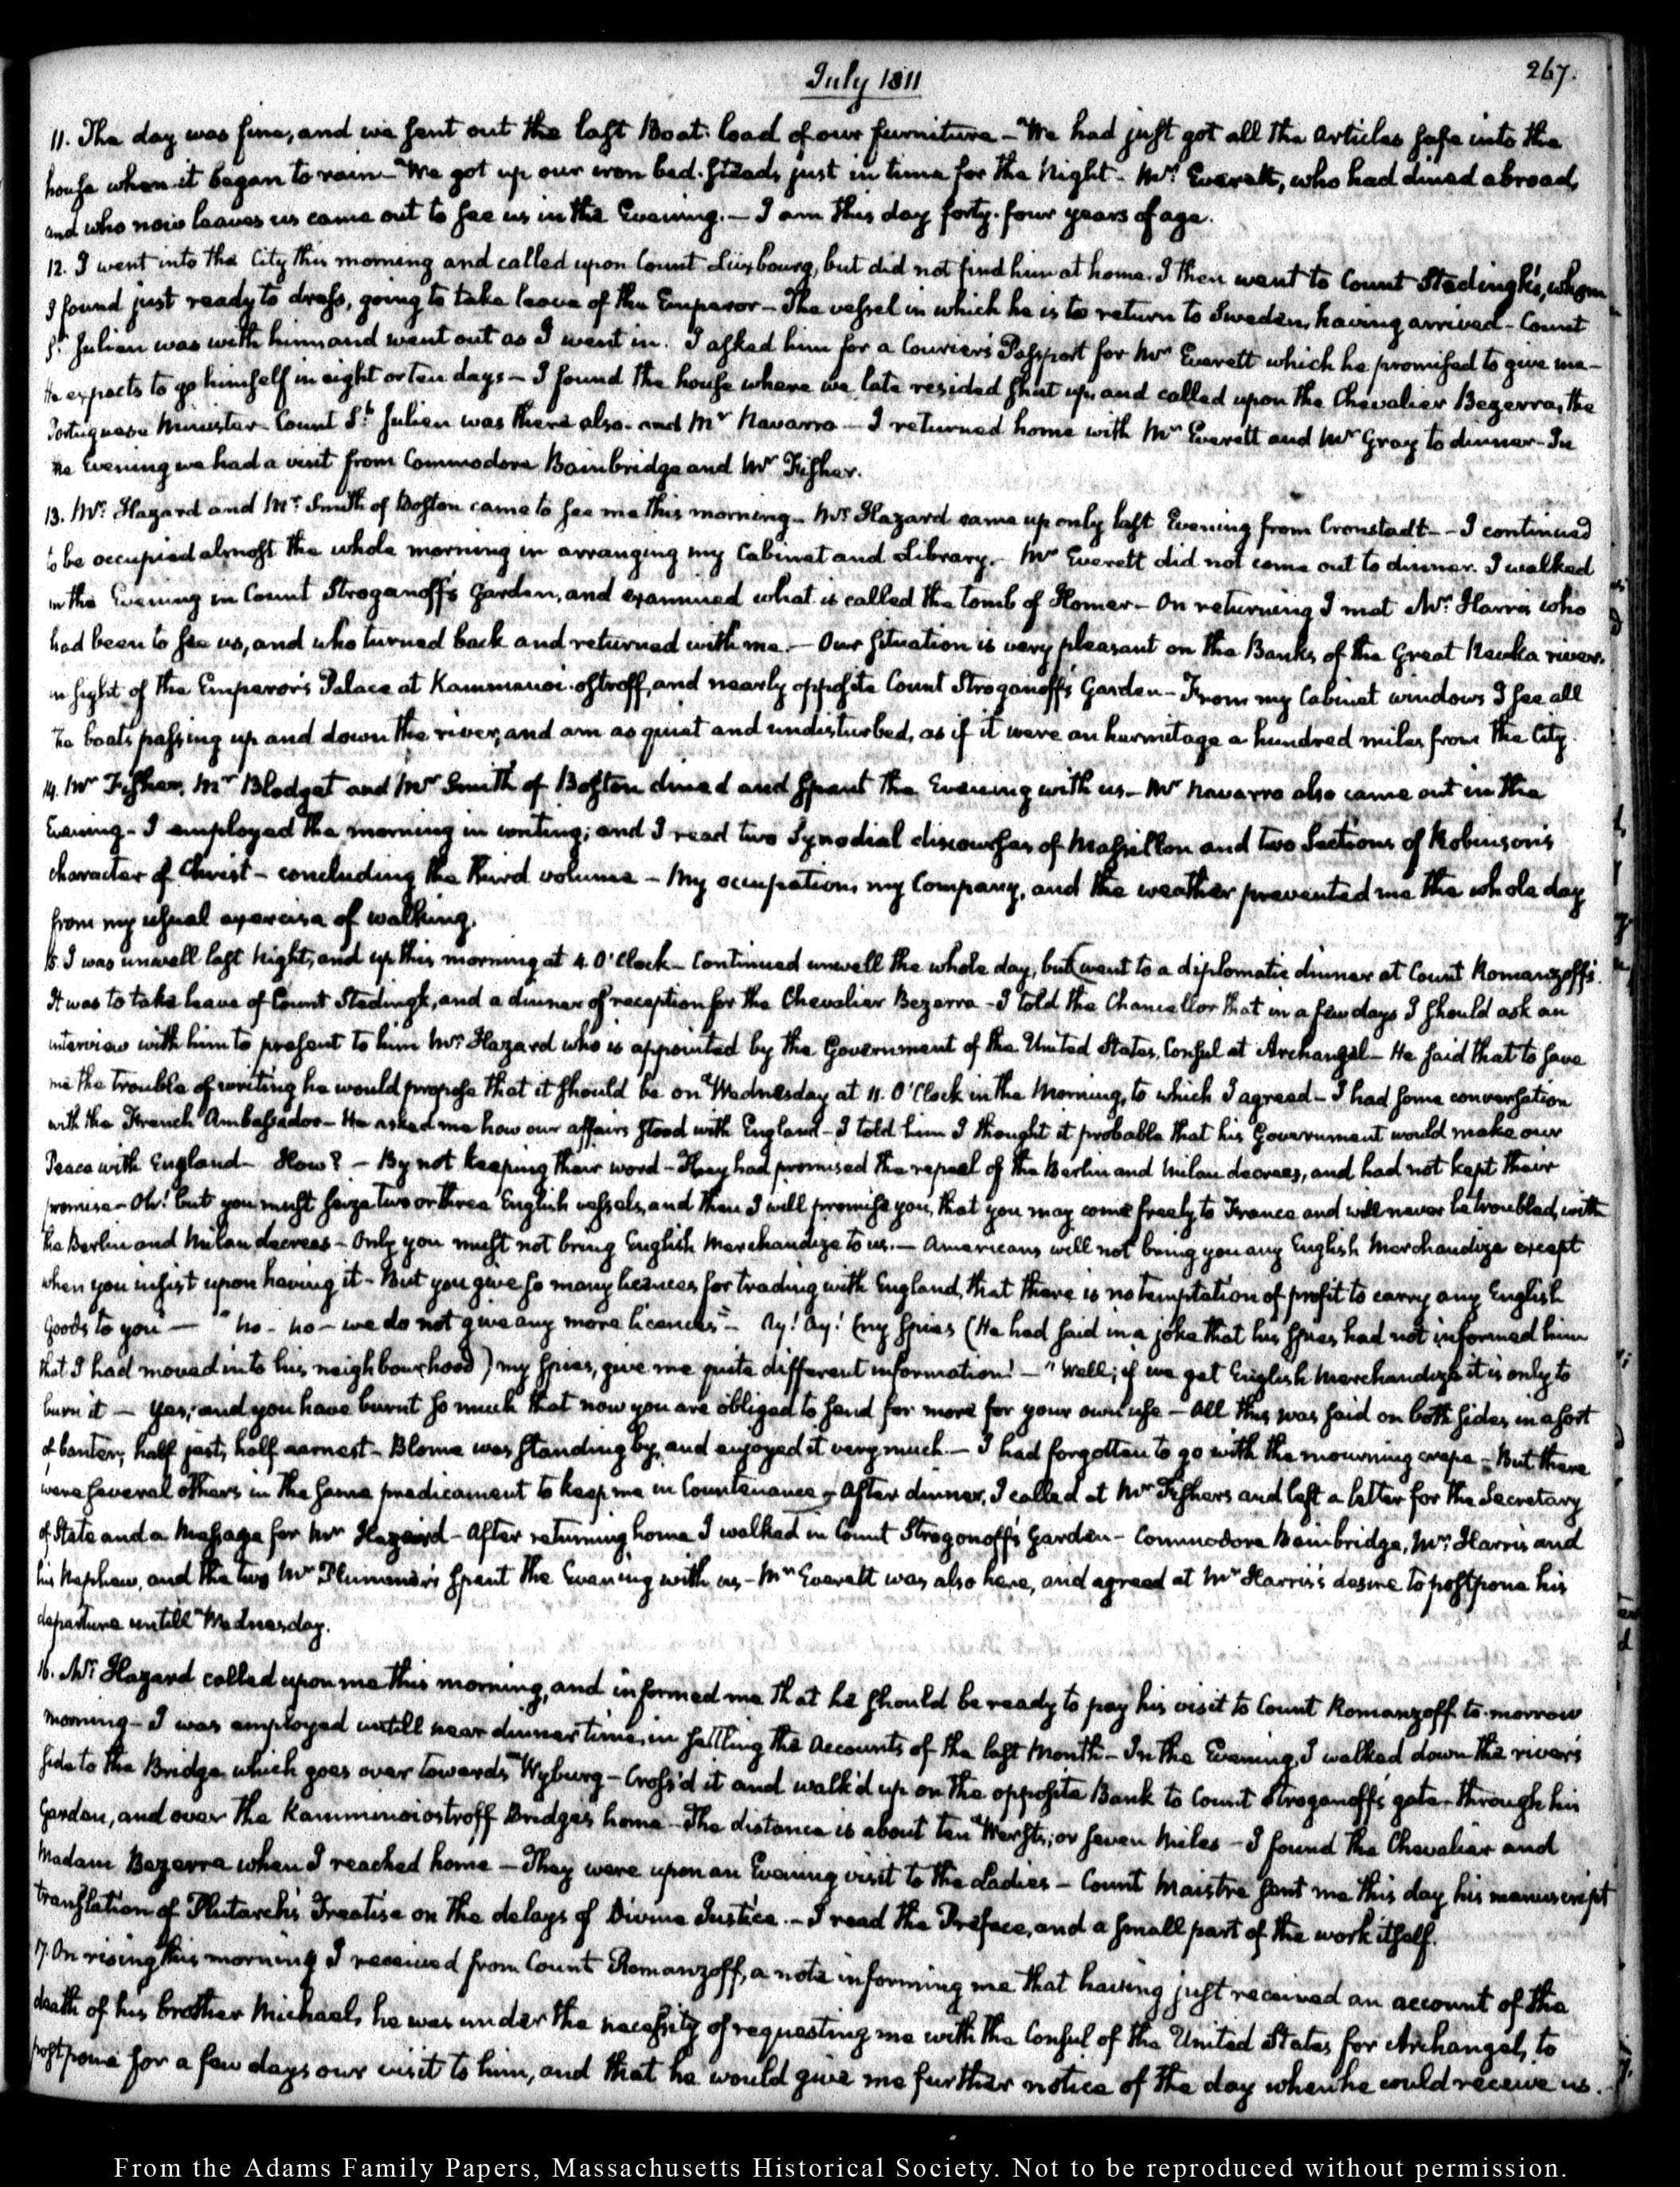 July 1811
267.
11. The day was fine, and we sent out the last Boat-load of our furniture — We had just got all the articles safe into the
house when it began to rain — We got up our iron bed-steads, just in time for the Night — Mr. Everett, who had dined abroad,
and who now leaves us came out to see us in the Evening. — I am this day forty-four years of age.
12. I went into the City this morning and called upon Count Luxbourg, but did not find him at home. I then went to Count Stedingk's, whom
I found just ready to dress, going to take leave of the Emperor — The vessel in which he is to return to Sweden, having arrived — Count
St. Julien was with him, and went out as I went in. I asked him for a Courier's Passport for Mr Everett which he promised to give me —
He expects to go himself in eight or ten days — I found the house where we late resided shut up, and called upon the Chevalier Bezerra, the
Portuguese Minister — Count St. Julien was there also — and Mr Navarro — I returned home with Mr Everett and Mr Gray to dinner — In
the Evening we had a visit from Commodore Bainbridge and Mr Fisher.
13. Mr. Hazard and Mr. Smith of Boston came to see me this morning — Mr. Hazard came up only last Evening from Cronstadt — I continued
to be occupied almost the whole morning in arranging my Cabinet and Library. — Mr Everett did not come out to dinner. I walked
in the Evening in Count Stroganoff's Garden, and examined what is called the tomb of Homer — On returning I met Mr. Harris who
had been to see us, and who turned back and returned with me. — Our situation is very pleasant on the Banks of the Great Nevka river,
in sight of the Emperor's Palace at Kammenoi-ostroff, and nearly opposite Count Stroganoff's Garden — From my Cabinet windows I see all
the boats passing up and down the river, and am as quiet and undisturbed, as if it were an hermitage a hundred miles from the City.
14. Mr Fisher, Mr Blodget and Mr Smith of Boston dined and spent the Evening with us — Mr Navarro also came out in the
Evening — I employed the morning in writing; and I read two Synodial discourses of Massillon and two Sections of Robinson's
character of Christ — concluding the third volume — My occupations, my Company, and the weather prevented me the whole day
from my usual exercise of walking.
15. I was unwell last Night, and up this morning at 4. O'Clock — Continued unwell the whole day, but went to a diplomatic dinner at Count Romanzoff's.
It was to take leave of Count Stedingk, and a dinner of reception for the Chevalier Bezerra — I told the Chancellor that in a few days I should ask an
interview with him to present to him Mr. Hazard who is appointed by the Government of the United States, Consul at Archangel — He said that to save
me the trouble of writing he would propose that it should be on Wednesday at 11. O'Clock in the Morning, to which I agreed — I had some conversation
with the French Ambassador — He asked me how our affairs stood with England — I told him I thought it probable that his Government would make our
Peace with England — How? — By not keeping their word — They had promised the repeal of the Berlin and Milan decrees, and had not kept their
promise — Oh! but you must seize two or three English vessels, and then I will promise you, that you may come freely to France and will never be troubled, with
the Berlin and Milan decrees — Only you must not bring English Merchandize to us. — Americans will not bring you any English Merchandize except
when you insist upon having it — But you give so many licences for trading with England, that there is no temptation of profit to carry any English
Goods to you — "No — no — we do not give any more licences" — Ay! Ay! (my spies (He had said in a joke that his spies had not informed him
that I had moved into his neighbourhood) my spies, give me quite different information! — "Well; if we get English Merchandize it is only to
burn it — Yes; and you have burnt so much that now you are obliged to send for more for your own use — All this was said on both sides, in a sort
of banter, half jest, half earnest — Blome was standing by, and enjoyed it very much. — I had forgotten to go with the mourning crape — But there
were several others in the same predicament to keep me in Countenance — After dinner, I called at Mr Fisher's and left a letter for the Secretary
of State and a Message for Mr Hazard — After returning home I walked in Count Strogonoff's Garden — Commodore Bainbridge, Mr. Harris and
his Nephew, and the two Mr Plummer's spent the Evening with us — Mr Everett was also here, and agreed at Mr Harris's desire to postpone his
departure untill Wednesday.
16. Mr. Hazard called upon me this morning, and informed me that he should be ready to pay his visit to Count Romanzoff to-morrow
morning — I was employed untill near dinner time, in settling the Accounts of the last Month — In the Evening, I walked down the river's
side to the Bridge, which goes over towards Wyburg — Cross'd it and walk'd up on the opposite Bank to Count Stroganoff's gate — through his
Garden, and over the Kamminoiostroff Bridges home — The distance is about ten Wersts; or seven Miles — I found the Chevalier and
Madam Bezerra when I reached home — They were upon an Evening visit to the Ladies — Count Maistre sent me this day his manuscript
translation of Plutarch's Treatise on the delays of Divine Justice. — I read the Preface, and a small part of the work itself.
17. On rising this morning I received from Count Romanzoff, a note informing me that having just received an account of the
death of his brother Michael, he was under the necessity of requesting me with the Consul of the United States for Archangel, to
postpone for a few days our visit to him, and that he would give me further notice of the day when he could receive us.
From the Adams Family Papers, Massachusetts Historical Society. Not to be reproduced without permission.